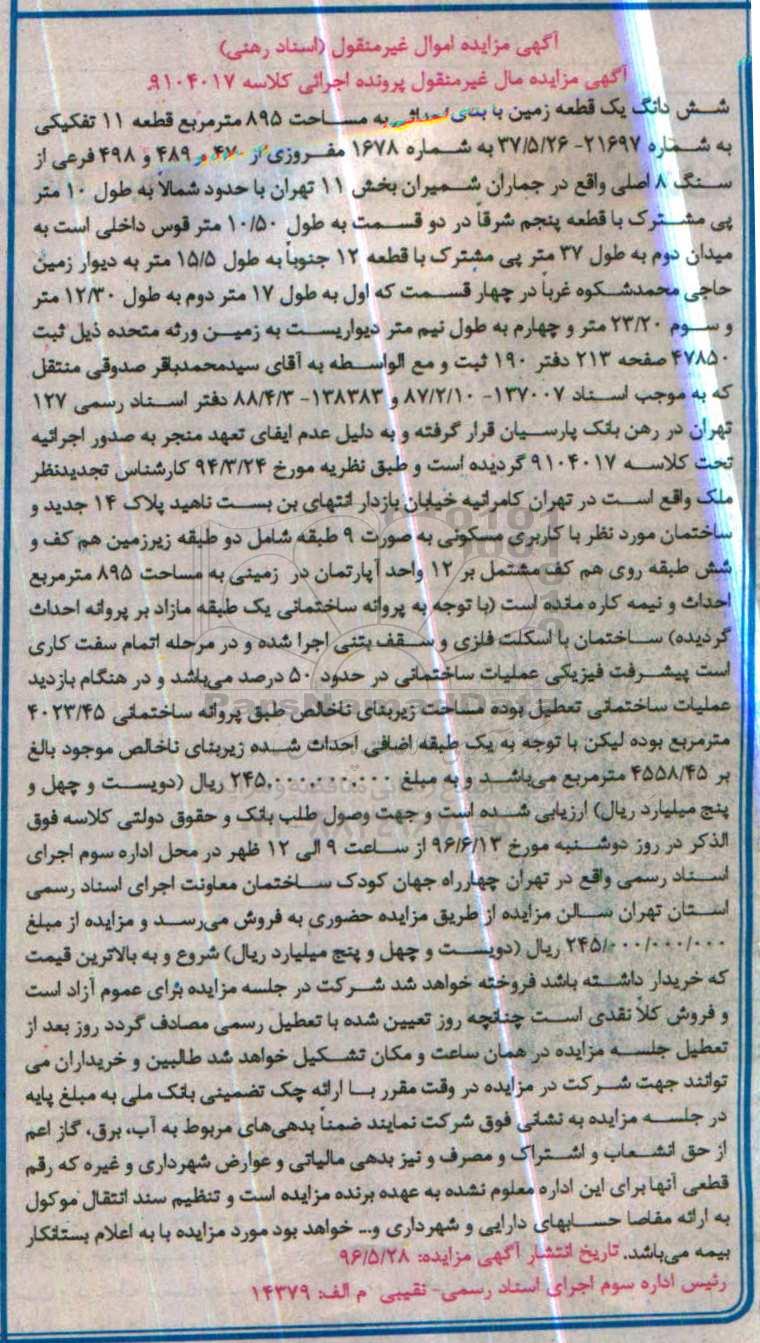 آگهی مزایده اموال غیرمنقول (اسناد رهنی)
آگهی مزایده مال غیرمنقول پرونده اجرائی کلاسه ۹۱۰۴۰۱۷
شش دانگ یک قطعه زمین با بنای احداثی به مساحت ۸۹۵ مترمربع قطعه ۱۱ تفکیکی
به شماره ۲۱۶۹۷- ۳۷/۵/۲۶ به شماره ۱۶۷۸ مفروزی از ۴۷۰ و ۴۸۹ و ۴۹۸ فرعی از
سنگ ۸ اصلی واقع در جماران شمیران بخش ۱۱ تهران با حدود شمالاً به طول ۱۰ متر
پی مشترک با قطعه پنجم شرقاً در دو قسمت به طول ۱۰/۵۰ متر قوس داخلی است به
میدان دوم به طول ۳۷ متر پی مشترک با قطعه ۱۲ جنوباً به طول ۱۵/۵ متر به دیوار زمین
حاجی محمدشکوه غرباً در چهار قسمت که اول به طول ۱۷ متر دوم به طول ۱۲/۳۰ متر
و سوم ۲۳/۲۰ متر و چهارم به طول نیم متر دیواریست به زمین ورثه متحده ذیل ثبت
۴۷۸۵۰ صفحه ۲۱۳ دفتر ۱۹۰ ثبت و مع الواسطه به آقای سیدمحمدباقر صدوقی منتقل
که به موجب اسناد ۱۳۷۰۰۷- ۸۷/۲/۱۰ و ۱۳۸۳۸۳- ۸۸/۴/۳ دفتر اسناد رسمی ۱۲۷
تهران در رهن بانک پارسیان قرار گرفته و به دلیل عدم ایفای تعهد منجر به صدور اجرائیه
تحت کلاسه ۹۱۰۴۰۱۷ گردیده است و طبق نظریه مورخ ۹۴/۳/۲۴ کارشناس تجدیدنظر
ملک واقع است در تهران کامرانیه خیابان بازدار انتهای بن بست ناهید پلاک ۱۴ جدید و
ساختمان مورد نظر با کاربری مسکونی به صورت ۹ طبقه شامل دو طبقه زیرزمین هم کف و
شش طبقه روی هم کف مشتمل بر ۱۲ واحد آپارتمان در زمینی به مساحت ۸۹۵ مترمربع
احداث و نیمه کاره مانده است (با توجه به پروانه ساختمانی یک طبقه مازاد بر پروانه احداث
گردیده) ساختمان با اسکلت فلزی و سقف بتنی اجرا شده و در مرحله اتمام سفت کاری
است پیشرفت فیزیکی عملیات ساختمانی در حدود ۵۰ درصد می‌باشد و در هنگام بازدید
عملیات ساختمانی تعطیل بوده مساحت زیربنای ناخالص طبق پروانه ساختمانی ۴۰۲۳/۴۵
مترمربع بوده لیکن با توجه به یک طبقه اضافی احداث شده زیربنای ناخالص موجود بالغ
بر ۴۵۵۸/۴۵ مترمربع می‌باشد و به مبلغ ۲۴۵,۰۰۰,۰۰۰,۰۰۰ ریال (دویست و چهل و
پنج میلیارد ریال) ارزیابی شده است و جهت وصول طلب بانک و حقوق دولتی کلاسه فوق
الذکر در روز دوشنبه مورخ ۹۶/۶/۱۳ از ساعت ۹ الی ۱۲ ظهر در محل اداره سوم اجرای
اسناد رسمی واقع در تهران چهارراه جهان کودک ساختمان معاونت اجرای اسناد رسمی
استان تهران سالن مزایده از طریق مزایده حضوری به فروش می‌رسد و مزایده از مبلغ
۲۴۵/۰۰۰/۰۰۰/۰۰۰ ریال (دویست و چهل و پنج میلیارد ریال) شروع و به بالاترین قیمت
که خریدار داشته باشد فروخته خواهد شد شرکت در جلسه مزایده برای عموم آزاد است
و فروش کلاً نقدی است چنانچه روز تعیین شده با تعطیل رسمی مصادف گردد روز بعد از
تعطیل جلسه مزایده در همان ساعت و مکان تشکیل خواهد شد طالبین و خریداران می
توانند جهت شرکت در مزایده در وقت مقرر با ارائه چک تضمینی بانک ملی به مبلغ پایه
در جلسه مزایده به نشانی فوق شرکت نمایند ضمناً بدهی‌های مربوط به آب، برق، گاز اعم
از حق انشعاب و اشتراک و مصرف و نیز بدهی مالیاتی و عوارض شهرداری و غیره که رقم
قطعی آنها برای این اداره معلوم نشده به عهده برنده مزایده است و تنظیم سند انتقال موکول
به ارائه مفاصا حسابهای دارایی و شهرداری و... خواهد بود مورد مزایده با به اعلام بستانکار
بیمه می‌باشد. تاریخ انتشار آگهی مزایده: ۹۶/۵/۲۸
رئیس اداره سوم اجرای اسناد رسمی- نقیبی م الف: ۱۴۳۷۹